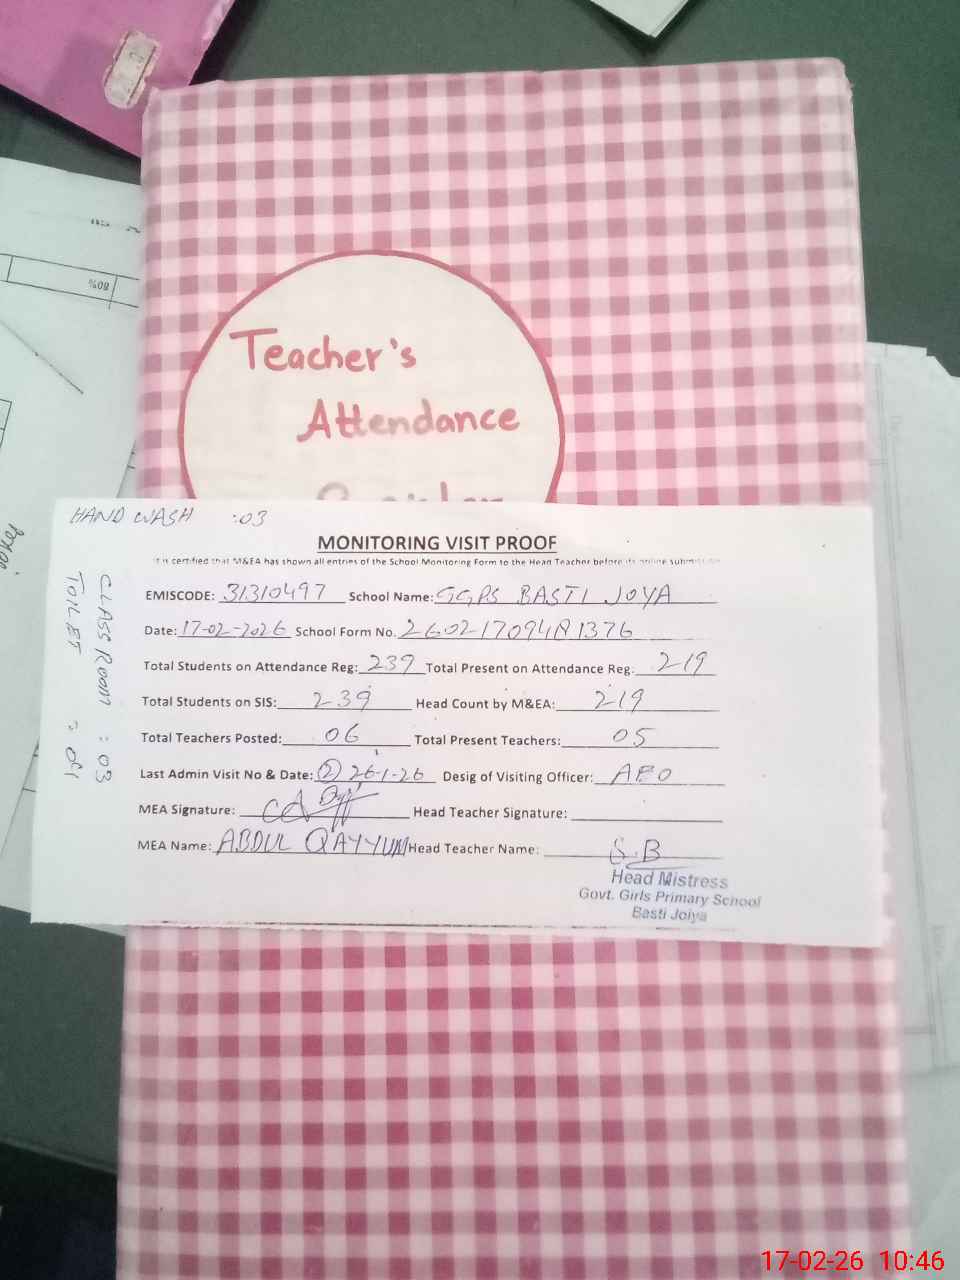 Teacher's
Attendance
HAND WASH :03
MONITORING VISIT PROOF
It is certified that M&EA has shown all entries of the School Monitoring Form to the Head Teacher before its online submission
EMISCODE: 31310497 School Name: GGPS BASTI JOYA
Date: 17-02-2026 School Form No.
Total Students on Attendance Reg: 239 Total Present on Attendance Reg: 219
Total Students on SIS: 239 Head Count by M&EA: 219
Total Teachers Posted: 06 Total Present Teachers: 05
Last Admin Visit No & Date: (2) 26-1-26 Desig of Visiting Officer: AEO
MEA Signature: Head Teacher Signature:
MEA Name: ABDUL QAYYUM Head Teacher Name: S.B
Head Mistress
Govt. Girls Primary School
Basti Joiya
CLASS ROOM : 03
TOILET : 04
80%
17-02-26 10:46